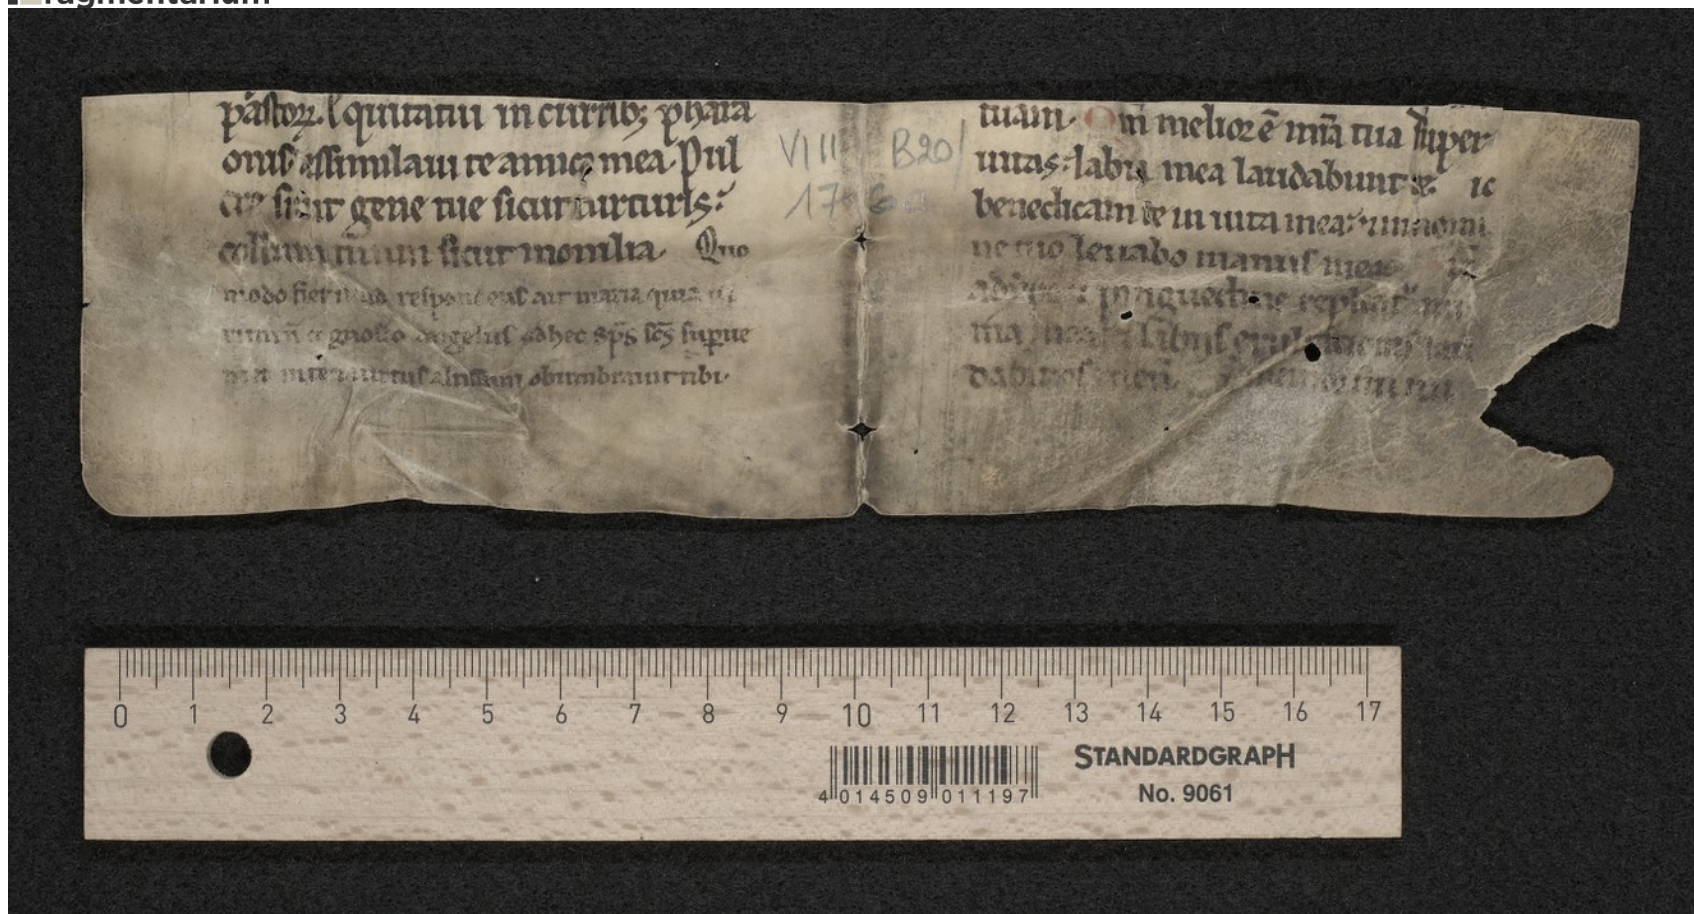 fragmentarium
pastoꝝ. Equitatui in curribꝫ phara
onis assimilaui te amica mea. Pul
cre sunt gene tue sicut turturis:
collum tuum sicut monilia. Quo
modo fiet istud respondens ait maria quia ui
rum ñ cognosco angelus ad hec sp̄s sc̄s supue
niet in te uirtus altissimi obumbrauit tibi.
tuam. Qm̄ melior ē mīa tua super
uitas: labia mea laudabunt te. ic
benedicam te in uita mea: in nomi
ne tuo leuabo manus meas.
pinguedine repleat
labiis
VIII B20/
4 014509 011197
0 1 2 3 4 5 6 7 8 9 10 11 12 13 14 15 16 17
STANDARDGRAPH
No. 9061